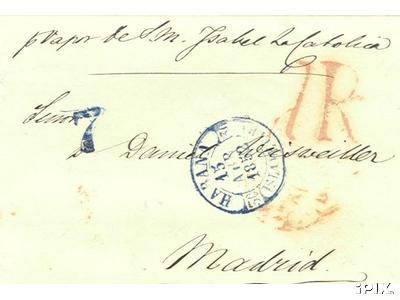 p Vapor de S. M. Ysabel La Catolica
Señor
7
D. Damián Weisweiller
1R
HABANA
15
ABR
Madrid.
iPIX